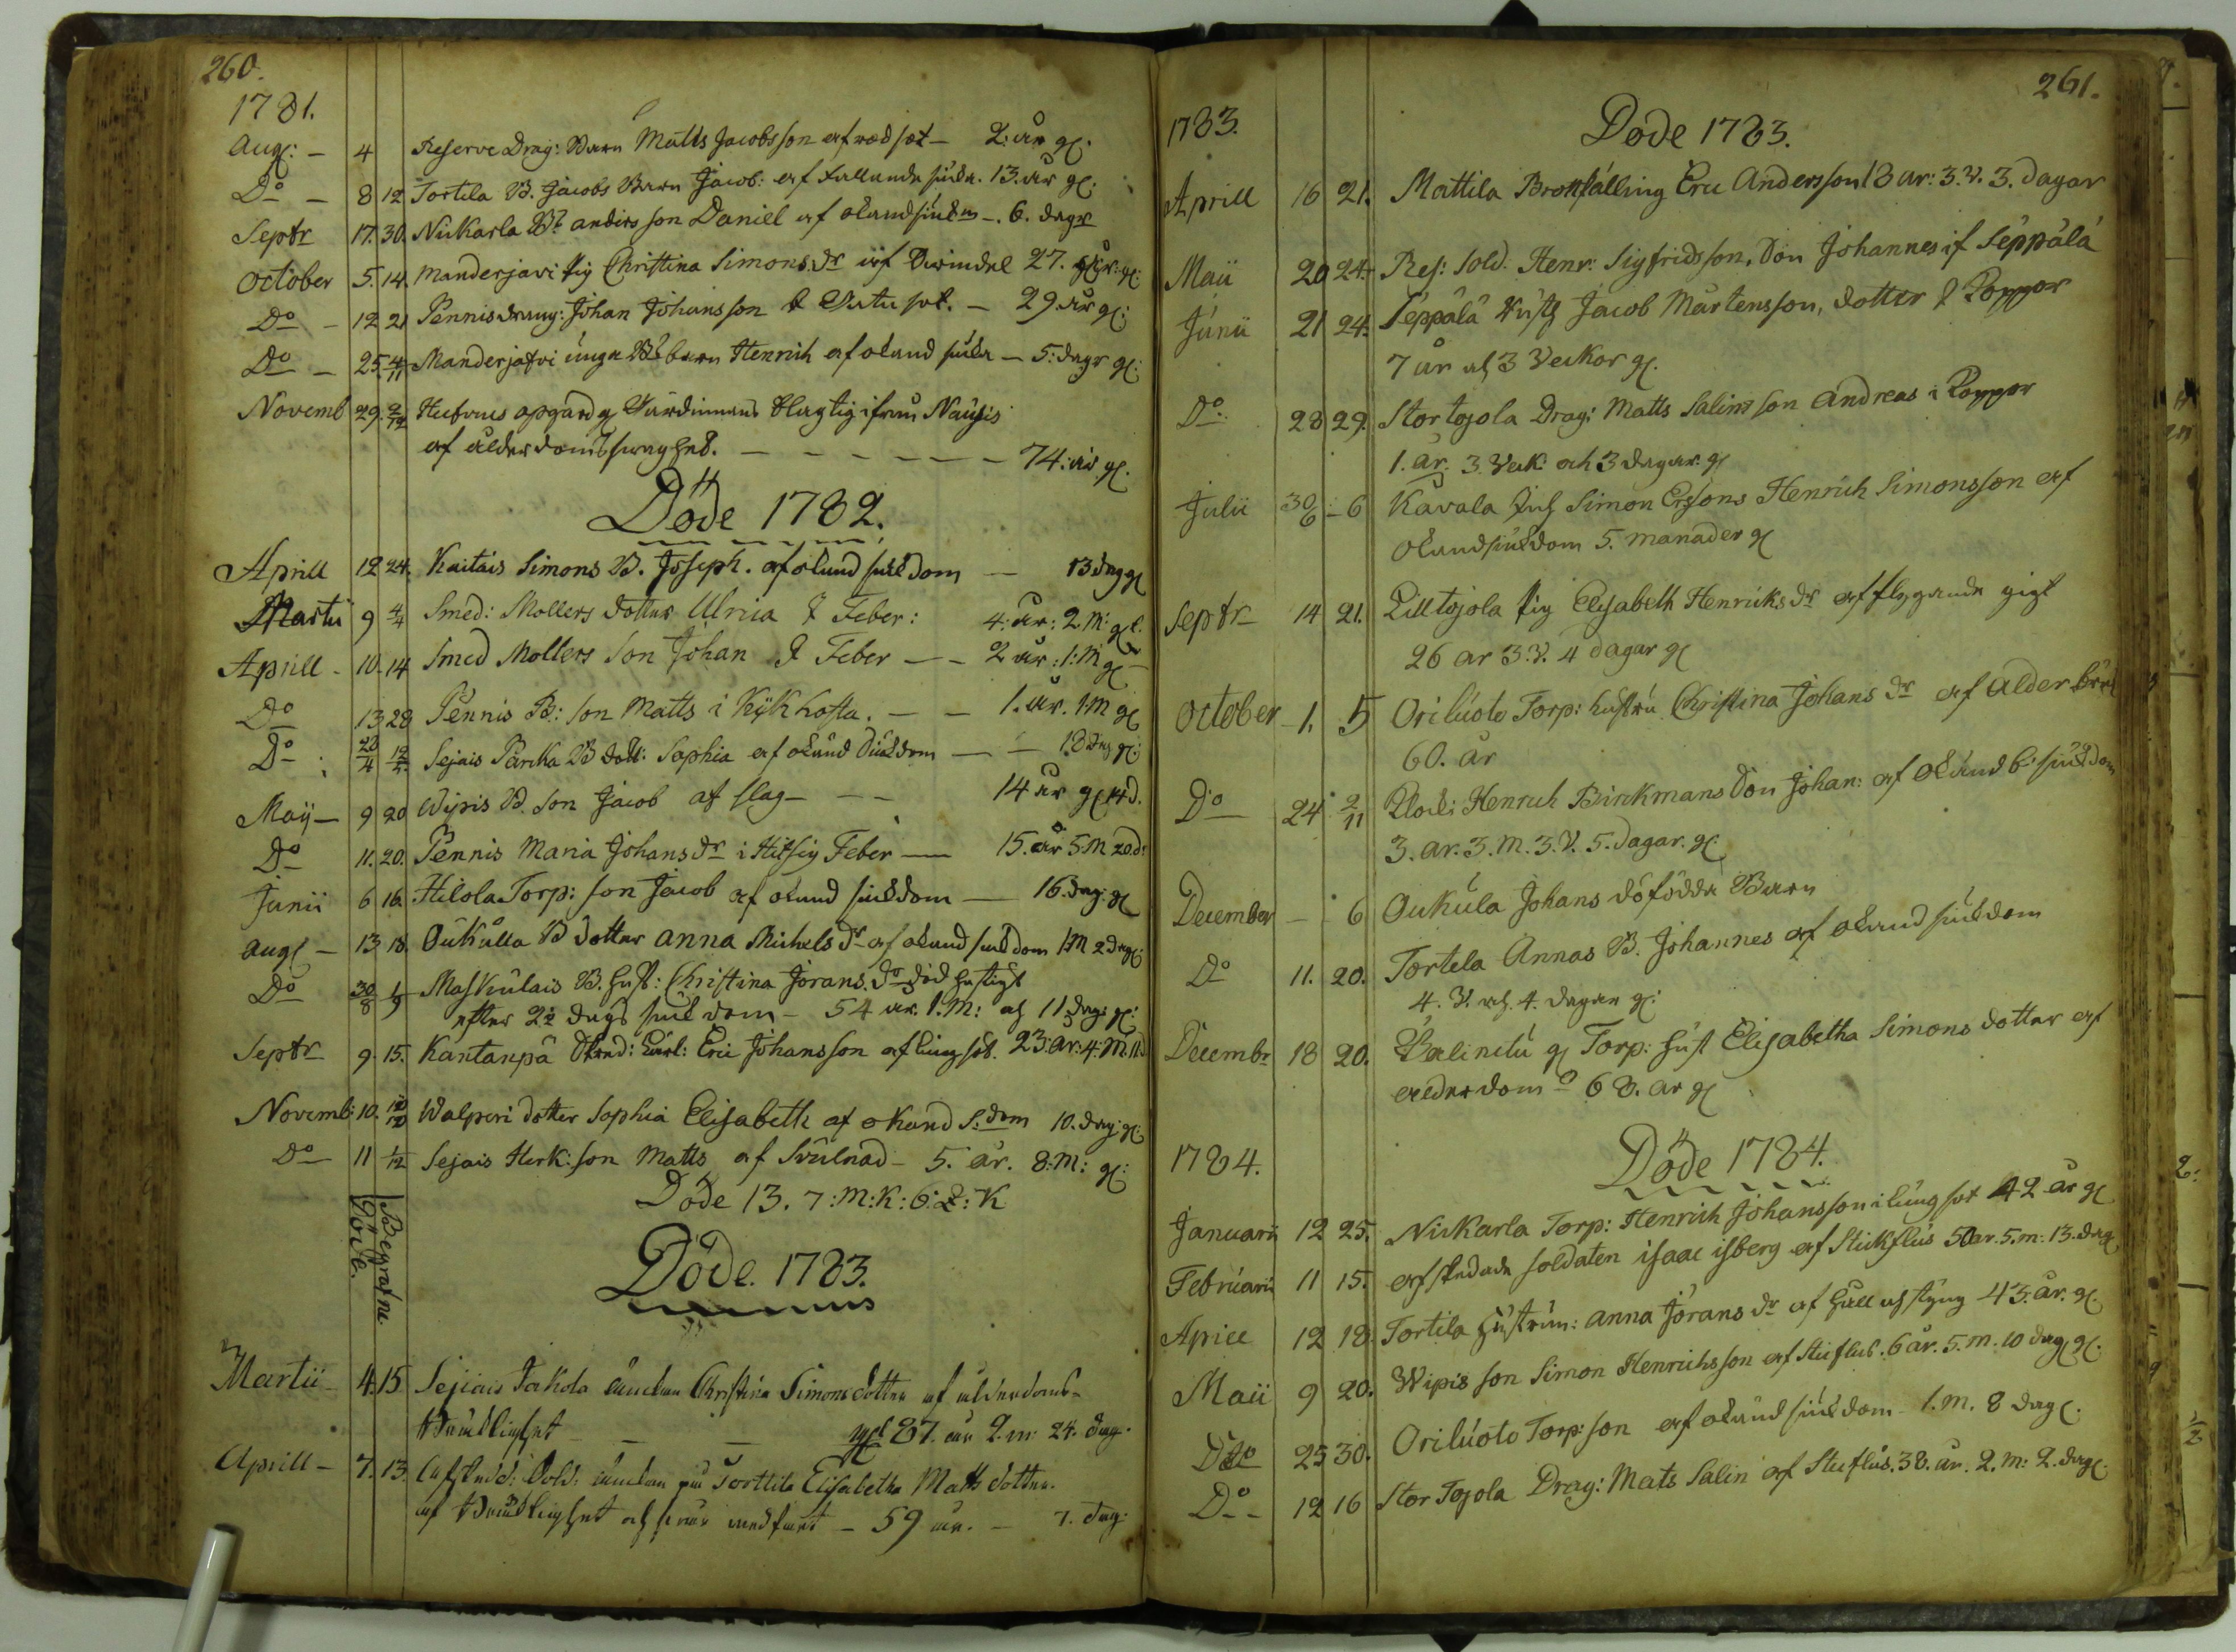 260.
1781.
Augl: – 4 Reserve Drag: Barn Matts Jacobsson af rödsot – 2: år gl.
Do – 8 12 Tortila B. Jacobs Barn Jacob: af fallande siuka. 13. år gl.
Septr 17. 30. Nickarla Bs anders son Daniel af okand siukm –. 6. dagr
October 5. 14. Manderjärvi Pig Christina Simonsdr af 27. år: gl.
Do – 12 21 Pennis dräng: Johan Johansson sot. – 29. år gl:
Do – 25 4/11 Manderjafvi unga Bs barn Henrich af okand siuka – 5: dagr gl:
Novemb 29. 2/12 ifrån Nausis
af ålderdoms swaghet. – – – – – – – 74: år gl.
Döde 1782.
Aprill 12 24. Kaitais Simons B. Joseph. af okund siukdom – 13 dag gl
Martii 9 4/4 Smed: Mollers dotter Ulrica I Feber: 4: år: 2. M: gl.
Aprill – 10. 14 Smed Mollers Son Johan I Feber – – 2 år: 1: M gl –
Do 13 28 Pennis B: son Matts i Kikhosta. – – 1. år. 1 M gl
Do : 20/4 12/5 Sejais B dott: Sophia af okand Siukdom – – 18 Dag gl:
Maij – 9 20 Wipis B. son Jacob af slag – – – 14 år gl 14 d.
Do 11. 20. Pennis Maria Johansdr i Hitsig Feber – 15. år 5 M 20 d:
Junii 6 16. Hilola Torp: son Jacob af okand siukdom – 16. dag: gl
Augl – 13 18. Oukulla B dotter Anna Michelsdr af okand siukdom 1 M 2 dag gl:
Do 30/8 1/9 Maskulais B. Hust: Christina Jörans. Dr död hastigt
efter 2½ dags siukdom – 54 år. 1. M: och 11 dag: gl:
Septr 9. 15. Kantanpä karl: Eric Johansson af lungsot. 23 år: 4: M 11 d
Novemb: 10. Walperi dotter Sophia Elisabeth af okand S:dom 10. dag: gl:
Do 11 1/12 Sejais Herk: son Matts af Svulnad – 5. år. 8: M: gl:
Döde 13. 7: M: K: 6: Q: K
Döde.
Begrafne.
Döde. 1783.
Martii 4. 15 Sejiais Jakola änckan Christina Simonsdotter af ålderdoms-
bräcklighet – – gl 87. år 2. m: 24. dag.
Aprill – 7. 13. Afsked: Sold: änckan på Torttila Elisabetha Matts dotter.
af bräcklighet och – 59 år. – 7. dag.
261.
1783.
Döde 1783.
Aprill 16 21. Mattila Eric Andersson 18 år: 3. V. 3. dagar
Maii 20 24. Res: Sold. Henr: Sigfridsson, Son Johannes if Seppälä
Junii 21 24. Seppälä Jacob Mårtensson, dotter I Koppor
7 år och 3 Veckor gl.
Do 28 29. Stor tojola Drag: Matts Salins son Andreas i Koppor
1. år. 3. Veck: och 3 dagar. gl
Julii 30/6 – 6 Kavala Inh Simon Ersons Henrich Simonsson af
okandsiukdom 5. manader gl
Septr 14 21. Lilltojola Pig Elisabeth Henricksdr af flygande gigt
26 år 3. V. 4 dagar gl
October – 1. 5 Oriluoto Torp: hustru Christina Johansdr af
60. år
Do 24 2/11 Henrich Birckmans Son Johan: af okand b: siukdom
3. år. 3. M. 3. V. 5. dagar. gl.
December – 6 Oukula Johans döfödda Barn
Do 11. 20. Tortela Annas B. Johannes af okand siukdom
4. V. och 4. dagar gl:
Decembr 18 20. gl Torp: Hust Elisabetha Simons dotter af
ålderdom 68. år gl
1784.
Döde 1784.
Januarii 12 25. Nickarla Torp: Henrich Johansson i lungsot 42 år gl
Februarii 11 15. afskedade soldaten isaac isberg af Stickflus 50 år. 5. m: 13. dag
Aprill 12 18 Tortila hustrun: anna Jöransdr af håll och styng 43. år. gl.
Maii 9 20. Wipis son Simon Henrichsson af Stickflus. 6 år. 5. m. 10 dag gl.
Dito 25 30. Oriluoto Torp: son af okand siukdom – 1. m. 8 dag.
Do – 12 16 Stor Tojola Drag: Mats Salin af Stickflus. 38. år. 2. m: 2. dag.